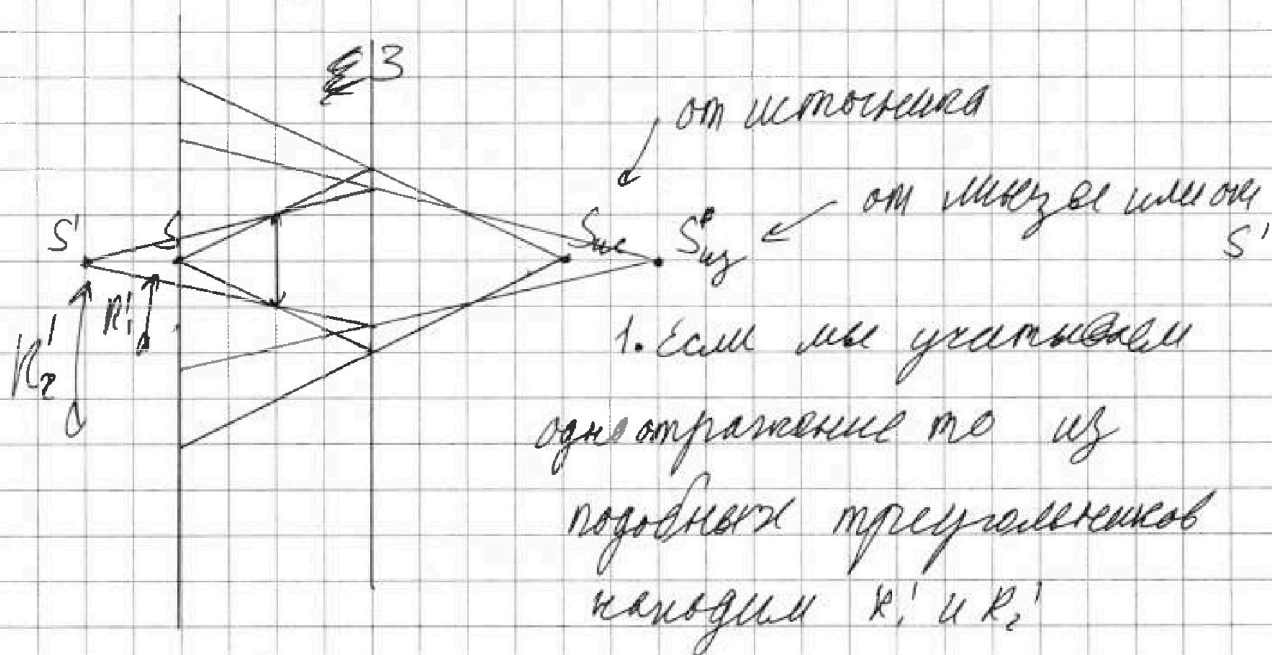 З
от источника
от линзы или от
S'
S' S Sис S'из
R₁'
R₂'
1. Если мы учитываем
одно отражение то из
подобных треугольников
находим R₁' и R₂'